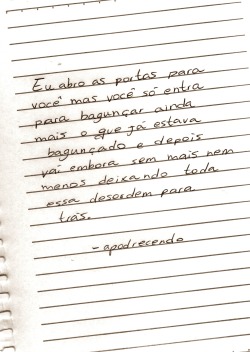 Eu abro as portas para
você mas você só entra
para bagunçar ainda
mais o que já estava
bagunçado e depois
vai embora sem mais nem
menos deixando toda
essa desordem para
trás.
- apodrecendo